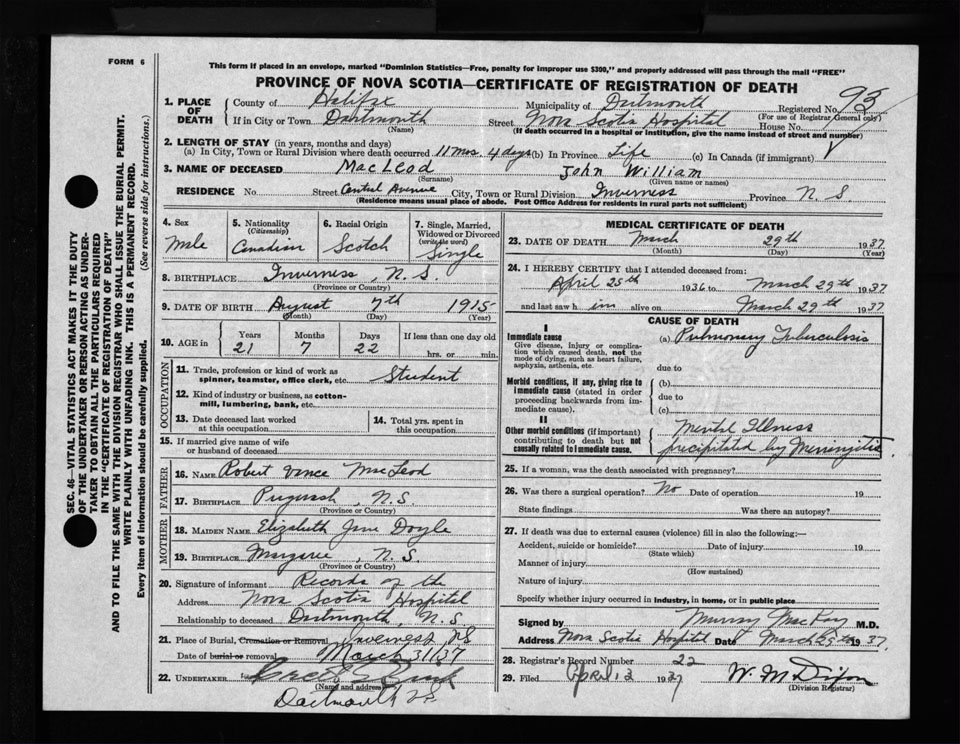 FORM 6
This form if placed in an envelope, marked "Dominion Statistics—Free, penalty for improper use $300," and properly addressed will pass through the mail "FREE"
PROVINCE OF NOVA SCOTIA—CERTIFICATE OF REGISTRATION OF DEATH
SEC. 46—VITAL STATISTICS ACT MAKES IT THE DUTY
OF THE UNDERTAKER OR PERSON ACTING AS UNDER-
TAKER TO OBTAIN ALL THE PARTICULARS REQUIRED
IN THE "CERTIFICATE OF REGISTRATION OF DEATH"
AND TO FILE THE SAME WITH THE DIVISION REGISTRAR WHO SHALL ISSUE THE BURIAL PERMIT.
WRITE PLAINLY WITH UNFADING INK. THIS IS A PERMANENT RECORD.
Every item of information should be carefully supplied. (See reverse side for instructions.)
1. PLACE OF DEATH
County of Halifax Municipality of Dartmouth Registered No. 93
(For use of Registrar General only)
If in City or Town Dartmouth Street Nova Scotia Hospital House No.
(Name) (If death occurred in a hospital or institution, give the name instead of street and number)
2. LENGTH OF STAY (in years, months and days)
(a) In City, Town or Rural Division where death occurred 11 mos. 4 days (b) In Province Life (c) In Canada (if immigrant)
3. NAME OF DECEASED MacLeod John William
(Surname) (Given name or names)
RESIDENCE No. Street Central Avenue City, Town or Rural Division Inverness Province N. S.
(Residence means usual place of abode. Post Office Address for residents in rural parts not sufficient)
4. Sex
Male
5. Nationality
(Citizenship)
Canadian
6. Racial Origin
Scotch
7. Single, Married,
Widowed or Divorced
(write the word)
Single
8. BIRTHPLACE Inverness, N. S.
(Province or Country)
9. DATE OF BIRTH August 7th 1915
(Month) (Day) (Year)
10. AGE in
Years Months Days If less than one day old
21 7 22 hrs. or min.
OCCUPATION
11. Trade, profession or kind of work as
spinner, teamster, office clerk, etc. Student
12. Kind of industry or business, as cotton-
mill, lumbering, bank, etc.
13. Date deceased last worked
at this occupation
14. Total yrs. spent in
this occupation
15. If married give name of wife
or husband of deceased
FATHER
16. NAME Robert Vance MacLeod
17. BIRTHPLACE Pugwash, N.S.
(Province or Country)
MOTHER
18. MAIDEN NAME Elizabeth Jane Doyle
19. BIRTHPLACE Margaree, N. S.
(Province or Country)
20. Signature of informant Records of the
Address Nova Scotia Hospital
Relationship to deceased Dartmouth, N. S.
21. Place of Burial, Cremation or Removal Inverness NS
Date of burial or removal March 31/37
22. UNDERTAKER
(Name and address)
Dartmouth NS
MEDICAL CERTIFICATE OF DEATH
23. DATE OF DEATH March 29th 1937
(Month) (Day) (Year)
24. I HEREBY CERTIFY that I attended deceased from:
April 25th 1936 to March 29th 1937
and last saw h im alive on March 29th 1937
CAUSE OF DEATH
I
Immediate cause
Give disease, injury or complica-
tion which caused death, not the
mode of dying, such as heart failure,
asphyxia, asthenia, etc.
(a) Pulmonary Tuberculosis
due to
Morbid conditions, if any, giving rise to
immediate cause (stated in order
proceeding backwards from im-
mediate cause).
(b)
due to
(c)
II
Other morbid conditions (if important)
contributing to death but not
causally related to immediate cause.
Mental Illness
precipitated by Meningitis
25. If a woman, was the death associated with pregnancy?
26. Was there a surgical operation? No Date of operation 19
State findings Was there an autopsy?
27. If death was due to external causes (violence) fill in also the following:—
Accident, suicide or homicide? Date of injury 19
(State which)
Manner of injury
(How sustained)
Nature of injury
Specify whether injury occurred in industry, in home, or in public place
Signed by Murray MacKay M.D.
Address Nova Scotia Hospital Date March 29th 1937
28. Registrar's Record Number 22
29. Filed April 2 1937 W. M. Dixon
(Division Registrar)